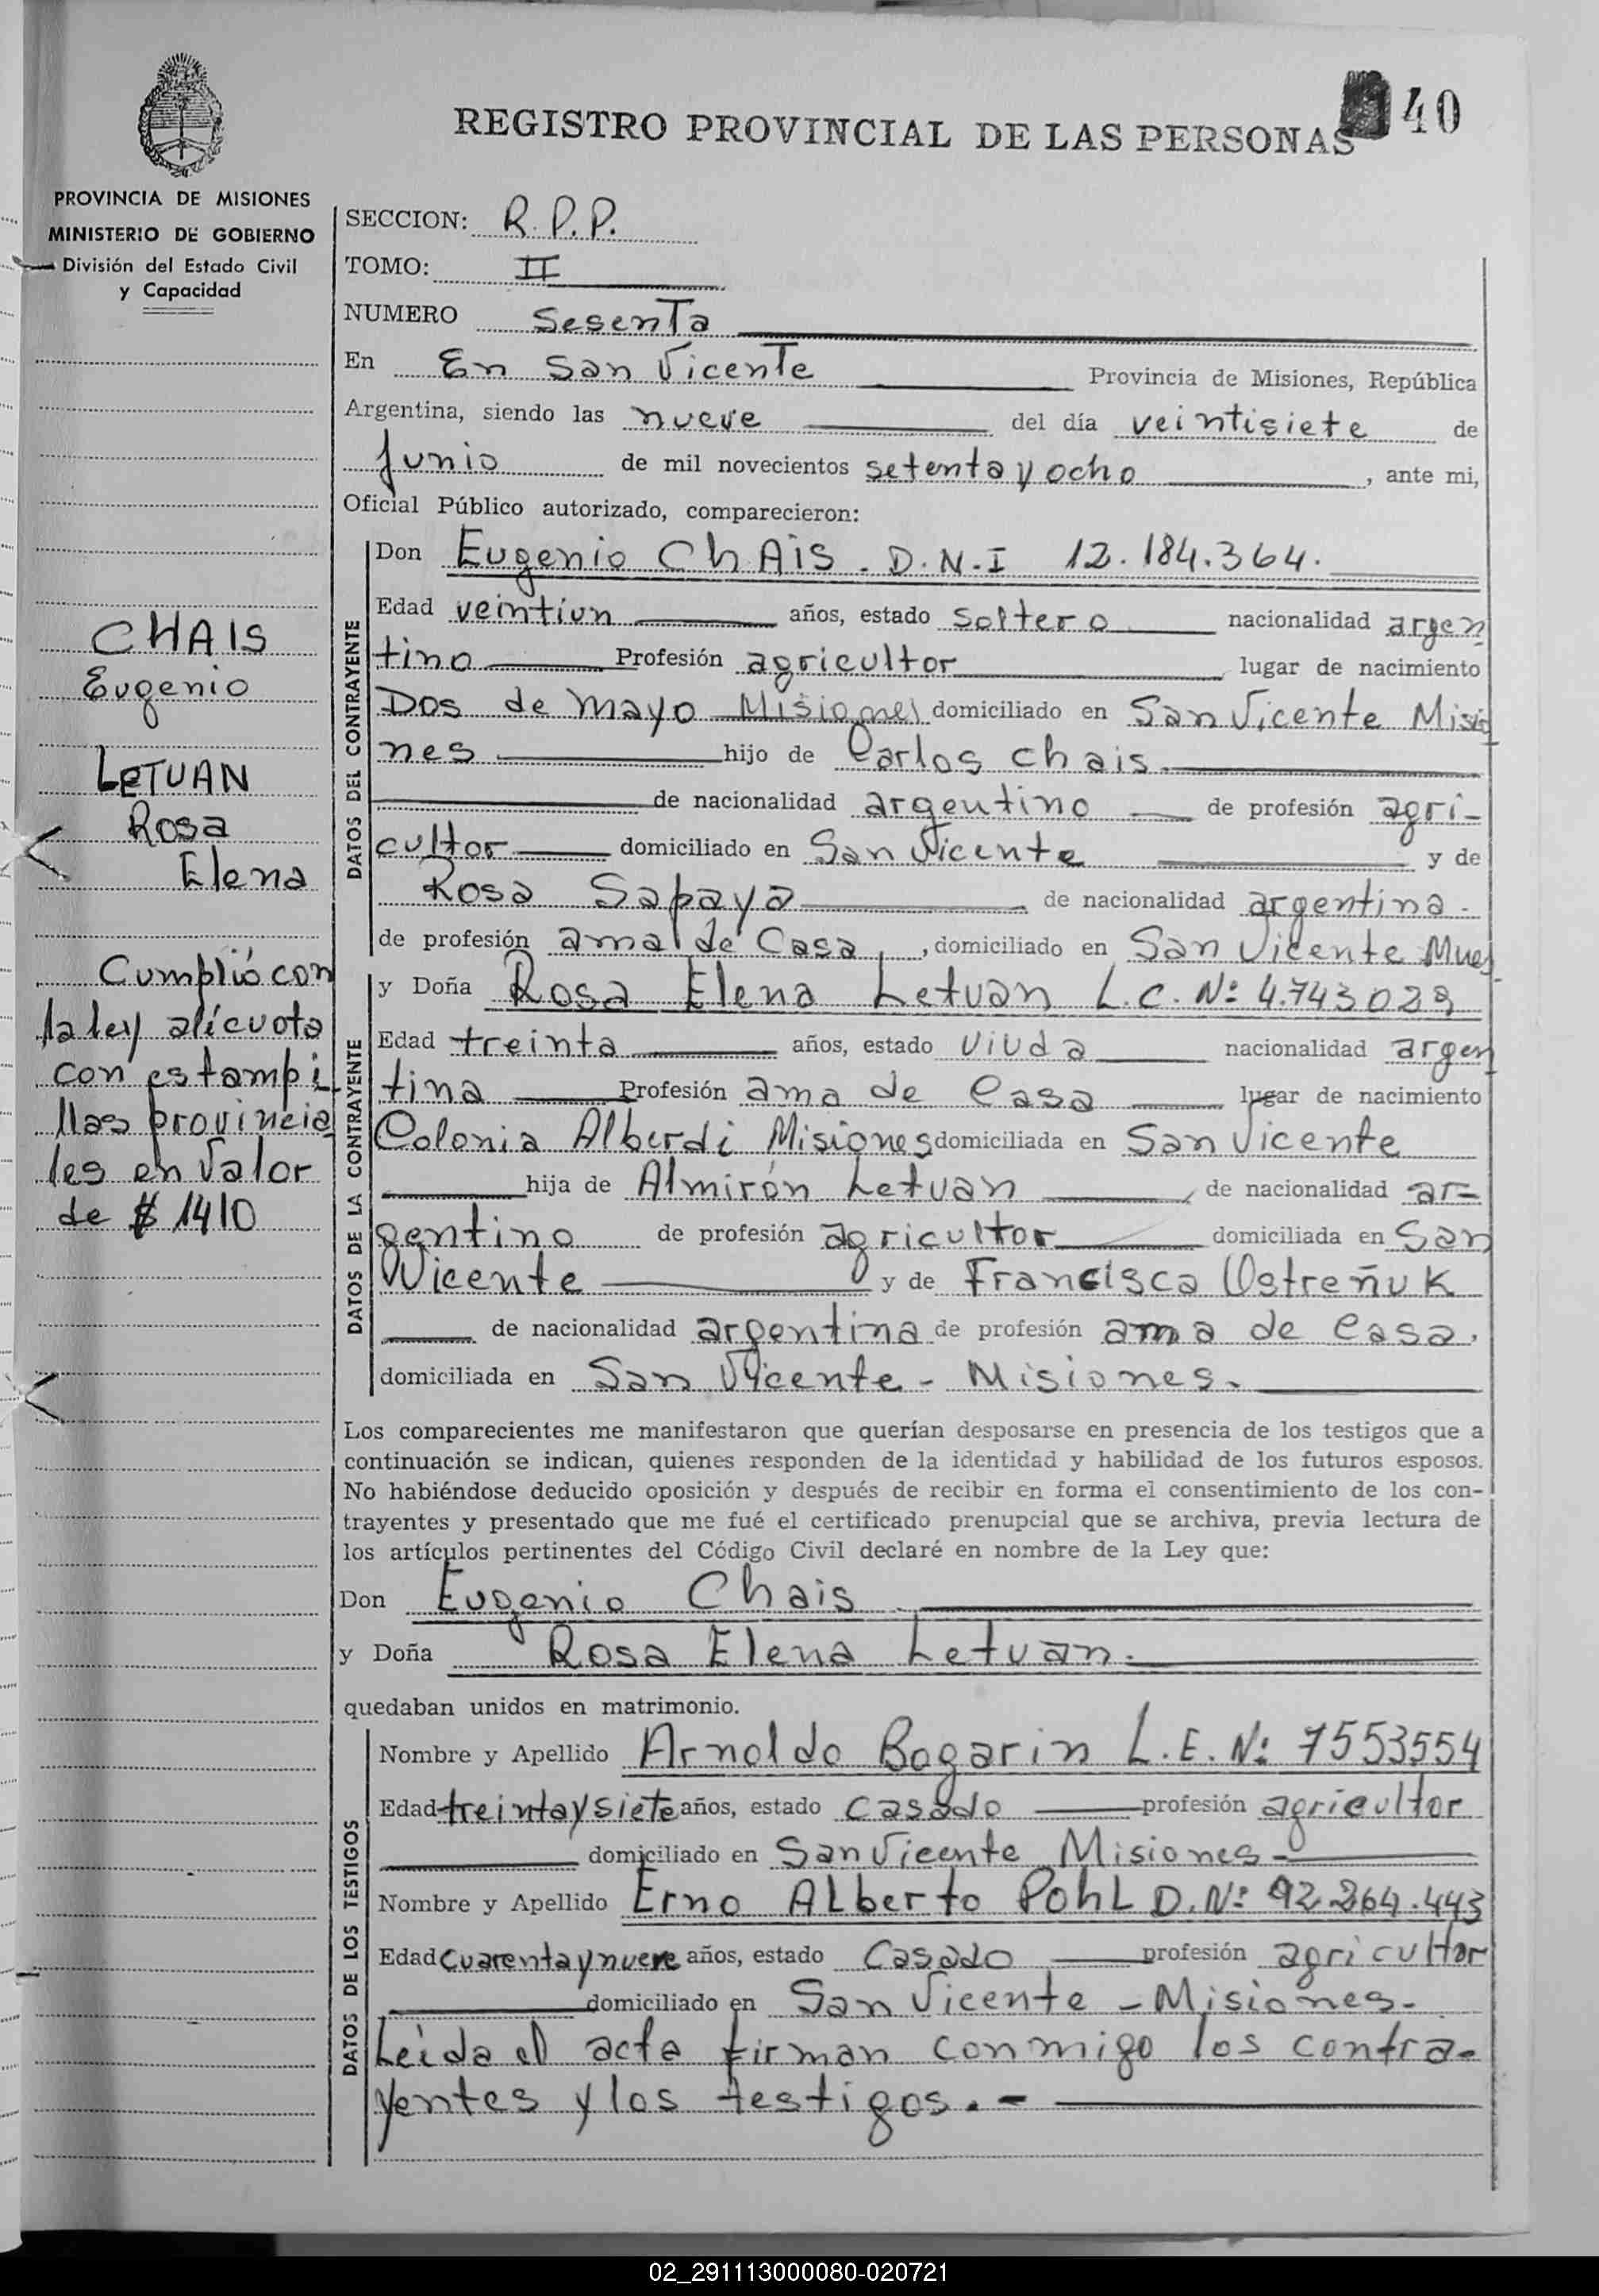 REGISTRO PROVINCIAL DE LAS PERSONAS
40
PROVINCIA DE MISIONES
MINISTERIO DE GOBIERNO
División del Estado Civil
y Capacidad
CHAIS
Eugenio
LETUAN
Rosa
Elena
Cumplió con
la ley alícuota
con estampi
llas provincia
les en valor
de $ 1410
SECCION: R.P.P.
TOMO: II
NUMERO Sesenta
En En San Vicente Provincia de Misiones, República
Argentina, siendo las nueve del día veintisiete de
Junio de mil novecientos setenta y ocho, ante mi,
Oficial Público autorizado, comparecieron:
DATOS DEL CONTRAYENTE
Don Eugenio Chais. D.N.I 12.184.364.
Edad veintiun años, estado Soltero nacionalidad argen
tino Profesión agricultor lugar de nacimiento
Dos de Mayo Misiones domiciliado en San Vicente Misio
nes hijo de Carlos Chais.
de nacionalidad argentino de profesión agri-
cultor domiciliado en San Vicente y de
Rosa Sapaya de nacionalidad argentina.
de profesión ama de Casa, domiciliado en San Vicente
DATOS DE LA CONTRAYENTE
y Doña Rosa Elena Letuan L.C. Nº 4.743029
Edad treinta años, estado Viuda nacionalidad argen
tina Profesión ama de Casa lugar de nacimiento
Colonia Alberdi Misiones domiciliada en San Vicente
hija de Almirón Letuan, de nacionalidad ar-
gentino de profesión agricultor domiciliada en San
Vicente y de Francisca Ostreñuk
de nacionalidad argentina de profesión ama de Casa,
domiciliada en San Vicente - Misiones.
Los comparecientes me manifestaron que querían desposarse en presencia de los testigos que a
continuación se indican, quienes responden de la identidad y habilidad de los futuros esposos.
No habiéndose deducido oposición y después de recibir en forma el consentimiento de los con-
trayentes y presentado que me fué el certificado prenupcial que se archiva, previa lectura de
los artículos pertinentes del Código Civil declaré en nombre de la Ley que:
Don Eugenio Chais
y Doña Rosa Elena Letuan.
quedaban unidos en matrimonio.
DATOS DE LOS TESTIGOS
Nombre y Apellido Arnoldo Bogarin L.E. Nº 7553554
Edad treinta y siete años, estado Casado profesión agricultor
domiciliado en San Vicente Misiones-
Nombre y Apellido Erno Alberto Pohl D.Nº 92.264.443
Edad cuarenta y nueve años, estado Casado profesión agricultor
domiciliado en San Vicente - Misiones.
Leída el acta firman conmigo los contra-
yentes y los testigos.-
02_291113000080-020721